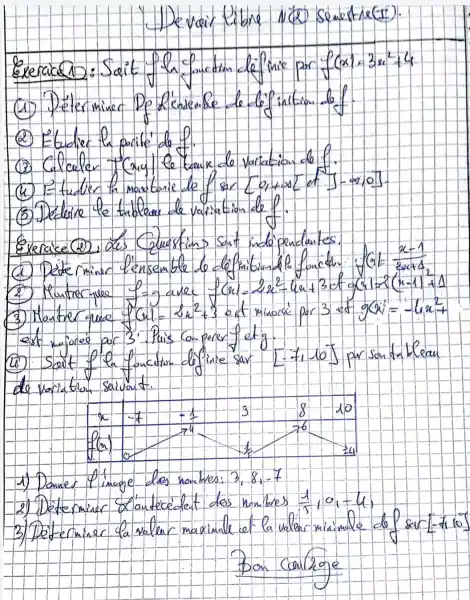 Devoir libre N(2) Semestre(II).
Exercice(1): Soit f la fonction définie par f(x) = 3x²+4
(1) Déterminer Df l'ensemble de définition de f.
(2) Etudier la parité de f.
(3) Calculer T(x,y) le taux de variation de f.
(4) Etudier la monotonie de f sur [0,+∞[ et ]-∞,0].
(5) Déduire le tableau de variation de f.
Exercice(2): Les Questions sont indépendantes.
(1) Déterminer l'ensemble de définition de la fonction f(x) = x-1
(2) Montrer que f=g avec f(x) = 2x²-4x+3 et g(x) = 2(x-1)²+1
(3) Montrer que f(x) = 2x²+3 est minoré par 3 et g(x) = -4x²+
est majoree par 3. Puis comparer f et g.
(4) Soit f la fonction définie sur [-7,10] par son tableau
de variation suivant.
x -7 -1 3 8 10
f(x) 0 4 6 -4
1) Donner l'image des nombres: 3, 8, -7
2) Déterminer l'antécédent des nombres 1/5, 0, -4,
3) Déterminer la valeur maximale et la valeur minimale de f sur [-7,10]
Bon courage